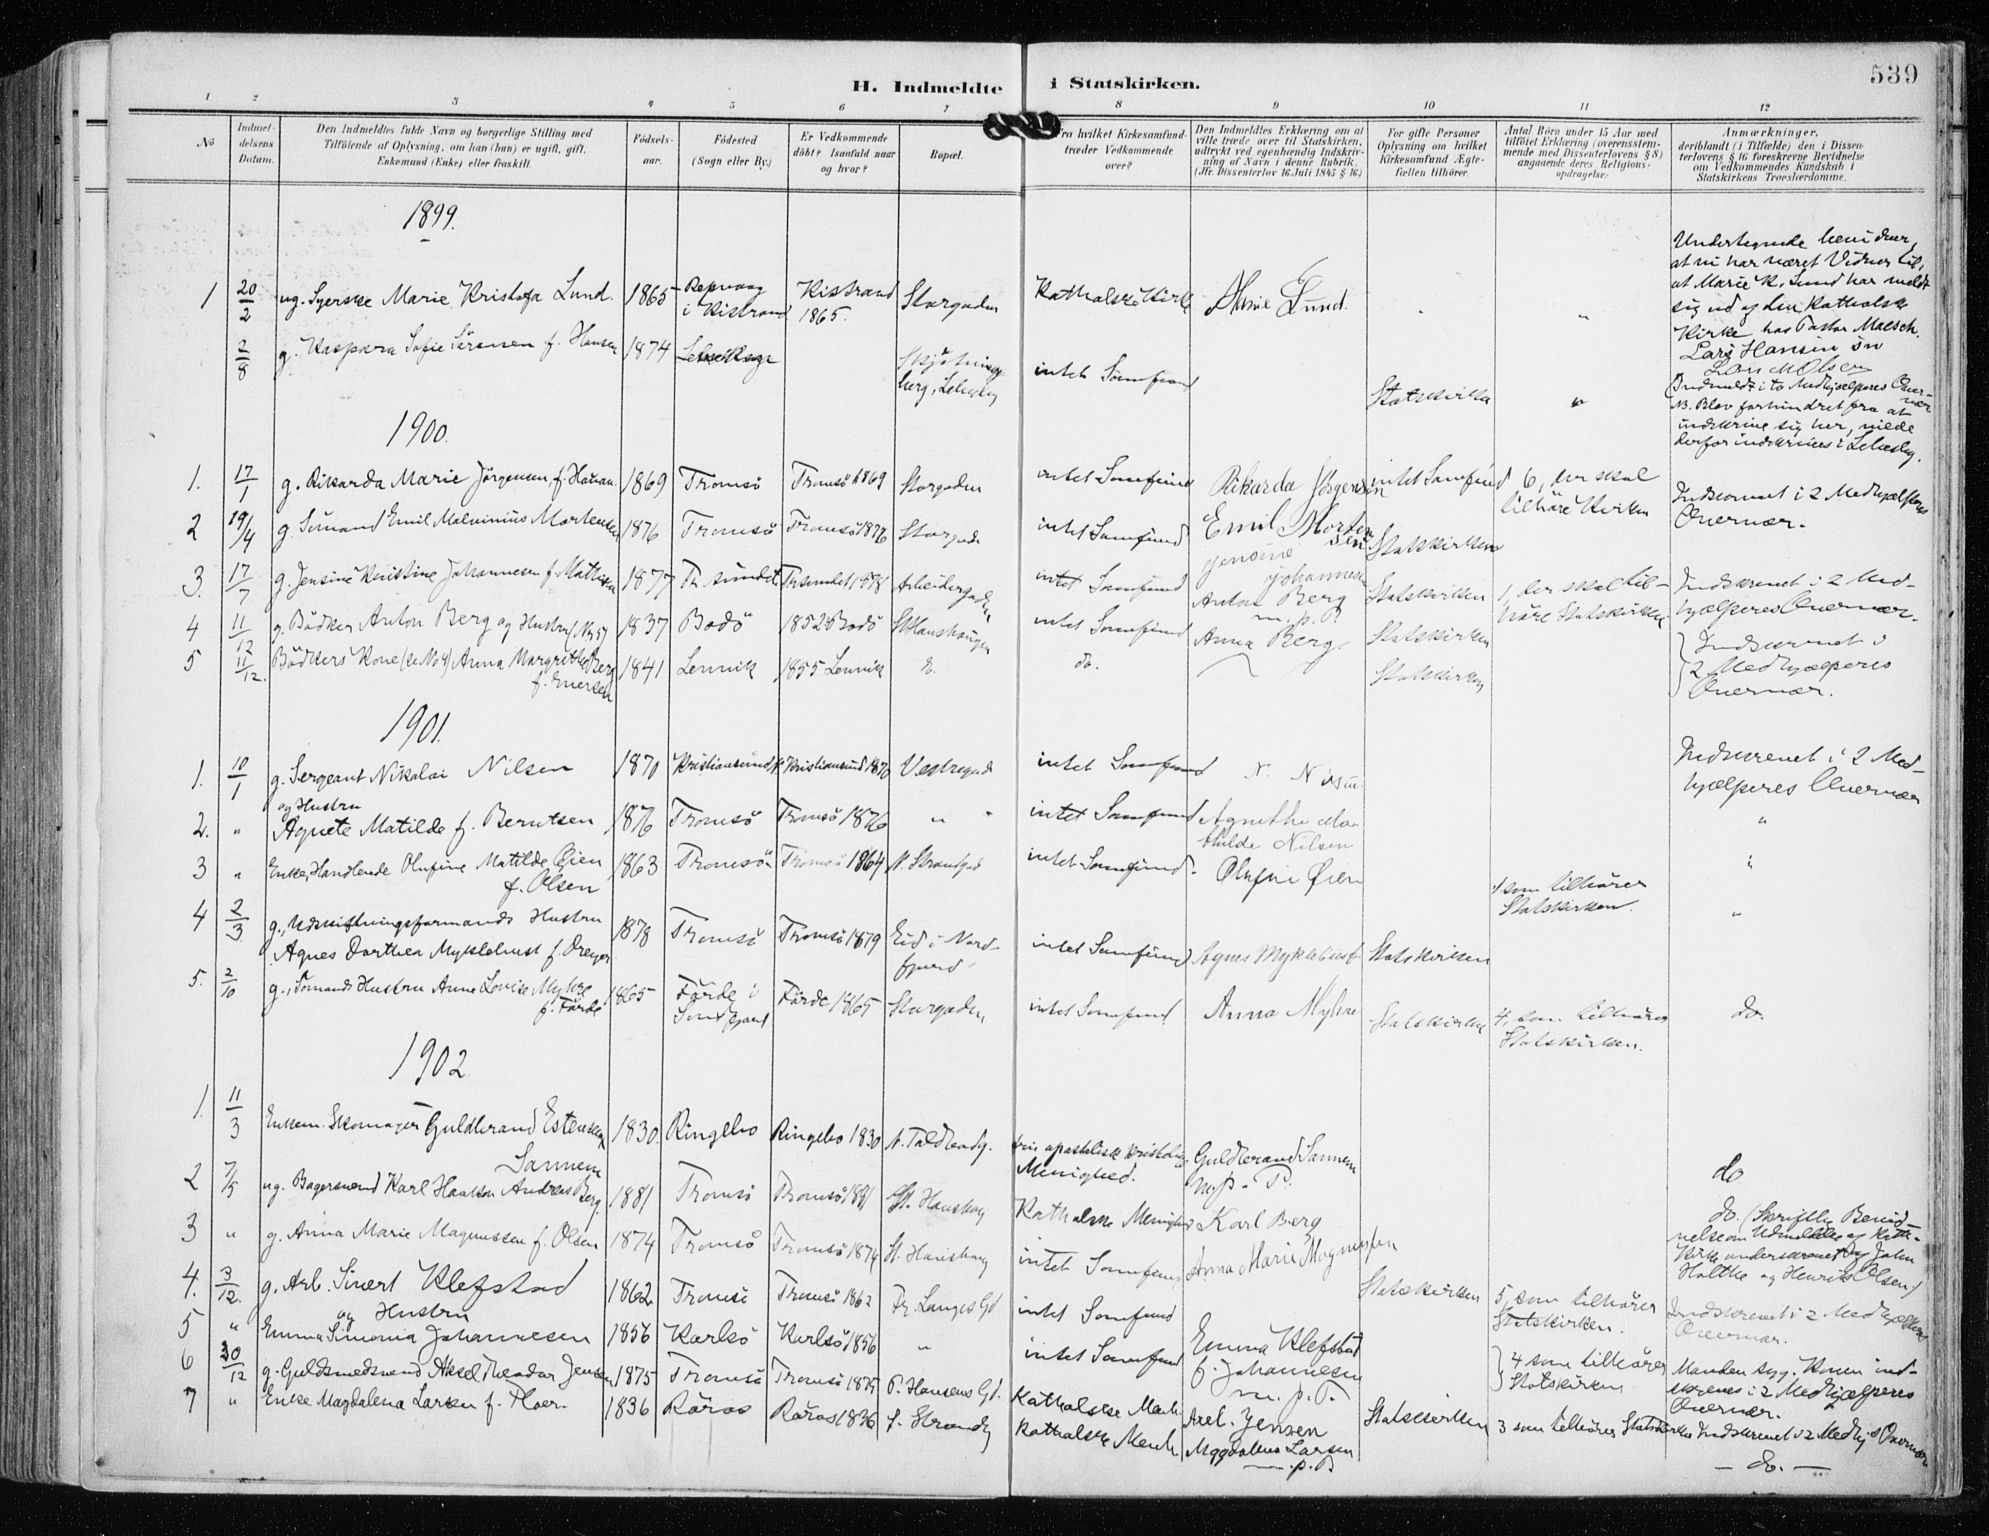 539
H. Indmeldte i Statskirken.
1 2 3 4 5 6 7 8 9 10 11 12
No
Indmel-
delsens
Datum.
Den Indmeldtes fulde Navn og borgerlige Stilling med
Tilföiende af Oplysning, om han (hun) er ugift, gift,
Enkemand (Enke) eller fraskilt.
Födsels-
aar.
Födested
(Sogn eller By.)
Er Vedkommende
döbt? Isaafald naar
og hvor?
Bopæl.
Fra hvilket Kirkesamfund
træder Vedkommende
over?
Den Indmeldtes Erklæring om at
ville træde over til Statskirken,
udtrykt ved egenhændig Indskriv-
ning af Navn i denne Rubrik.
(Jfr. Dissenterlov 16 Juli 1845 § 16)
For gifte Personer
Oplysning om hvilket
Kirkesamfund Ægte-
fællen tilhörer.
Antal Börn under 15 Aar med
tilföiet Erklæring (overensstem-
mende med Dissenterlovens § 8)
angaaende deres Religions-
opdragelse.
Anmærkninger,
deriblandt (i Tilfælde) den i Dissen-
terlovens § 16 foreskrevne Bevidnelse
om Vedkommendes Kundskab i
Statskirkens Troeslærdomme.
1899.
1 20/2 ug. Syerske Marie Kristofa Lund. 1865 Repvaag
i Kistrand Kistrand
1865. Storgaden Katholske Kirke Marie Lund. " "
at vi har været Vidner til,
at Marie K. Lund har meldt
sig ud af den Katholske
Kirke hos Pastor
Lars Hansen
2/8 g. Kaspara Sofie Sörensen f. Hansen 1874 Lebesby intet Samfund Statskirken "
Indmeldt i to Medhjælperes Over-
vær
NB. Blev forhindret fra at
indskrive sig her,
derfor indskrives i Lebesby.
1900.
1. 17/1 g. Rikarda Marie Jörgensen f. 1869 Tromsö Tromsö 1869 Storgaden intet Samfund Rikarda Jörgensen intet Samfund 6, der skal
tilhöre Kirken Indskrevet i 2 Medhjælperes
Overvær.
2 19/4 g. Sömand Emil Malvinius Mortensen 1876 Tromsö Tromsö 1876 Storgaden intet Samfund Emil Morten
sen Statskirken
3. 17/7 g. Jensine Kristine Johannesen f. 1877 Tr. sundet Tr. sundet 1878 Arbeidergaden intet Samfund Jensine
Johannesen Statskirken 1, der skal til-
höre Statskirken Indskrevet i 2 Med-
hjælperes Overvær.
4 11/12 g. Bödker Anton Berg og Hustru 1837 Bodö 1852 Bodö St. Hanshaugen intet Samfund Anton Berg
m. p. P. Statskirken
5 11/12. Bödkers Kone (se No 4) Anna Margrithe Berg
f. Eversen 1841 Lenvik 1855 Lenvik do. do. Anna Berg. Statskirken Indskrevet i
2 Medhjælperes
Overvær.
1901.
1. 10/1 g. Sergeant Nikolai Nilsen 1870 Kristiansund Kristiansund 1870 Vestregade intet Samfund N. Nilsen Indskrevet i 2 Med-
hjælperes Overvær
og Hustru
2. " Agnete Matilde f. Berntsen 1876 Tromsö Tromsö 1876 " " intet Samfund Agnethe Ma-
thilde Nilsen "
3 " Enke, Handlende Olufine Matilde Öien
f. Olsen 1863 Tromsö Tromsö 1864 N. Strandgad intet Samfund. Olufine Öien 1 som tilhörer
Statskirken. "
4 2/3 g., Udskiftningsformands Hustru
Agnes Dorthea Myklebust f. Dreyer 1878 Tromsö Tromsö 1879 Eid i Nord-
fjord intet Samfund Agnes Myklebust Statskirken "
5. 2/10 g., Sömands Hustru Anne Lovise Myhre
f. Förde 1865 Förde i
Söndfjord Förde 1865 Storgaden intet Samfund Anna Myhre Statskirken 4, som tilhörer
Statskirken. do.
1902
1. 11/3 Enkem. Skomager Guldbrand Estensen
Sannem 1830 Ringebo Ringebo 1830 N. Toldbodg. fri apostolisk kristelig
Menighed. Guldbrand Sannem
m. p. P. do
2 7/5 ug. Bagersvend Karl Haakon Andreas Berg 1881 Tromsö Tromsö 1881 St. Hanshaug Katholske Menighed Karl Berg do. (Skriftlig Bevid-
nelse om Udmeldelse af Kath.
Kirke underskrevet af John
Holthe og Henrik Olsen)
3 " g. Anna Marie Magnussen f. Olsen 1874 Tromsö Tromsö 1874 St. Hanshaug intet Samfund Anna Marie Magnussen Statskirken 5, som tilhörer
Statskirken. Indskrevet i 2 Medhjælperes
Overvær.
4. 3/12. g. Arb. Sivert Klefstad 1862 Tromsö Tromsö 1862 Fr. Langes Gd intet Samfund
og Hustru
5 " Emma Simonia Johannesen 1856 Karlsö Karlsö 1856 " intet Samfund Emma Klefstad
f. Johannesen
m. p. P. 4 som tilhörer
Statskirken Manden syg. Konen ind-
skrives i 2 Medhjælperes
Overvær.
6 30/12 g. Guldsmedsvend Aksel Theodor Jensen 1875 Tromsö Tromsö 1875 P. Hansens Gd. Katholske Menh. Axel. Jensen Statskirken 3 som tilhörer Statskirken Indskrevet i 2 Medhj.s Overvær
7 " Enke Magdalena Larsen f. Floer. 1836 Röros Röros 1836 S. Strandg Katholske Menh Magdalena Larsen
m. p. P. — do. —